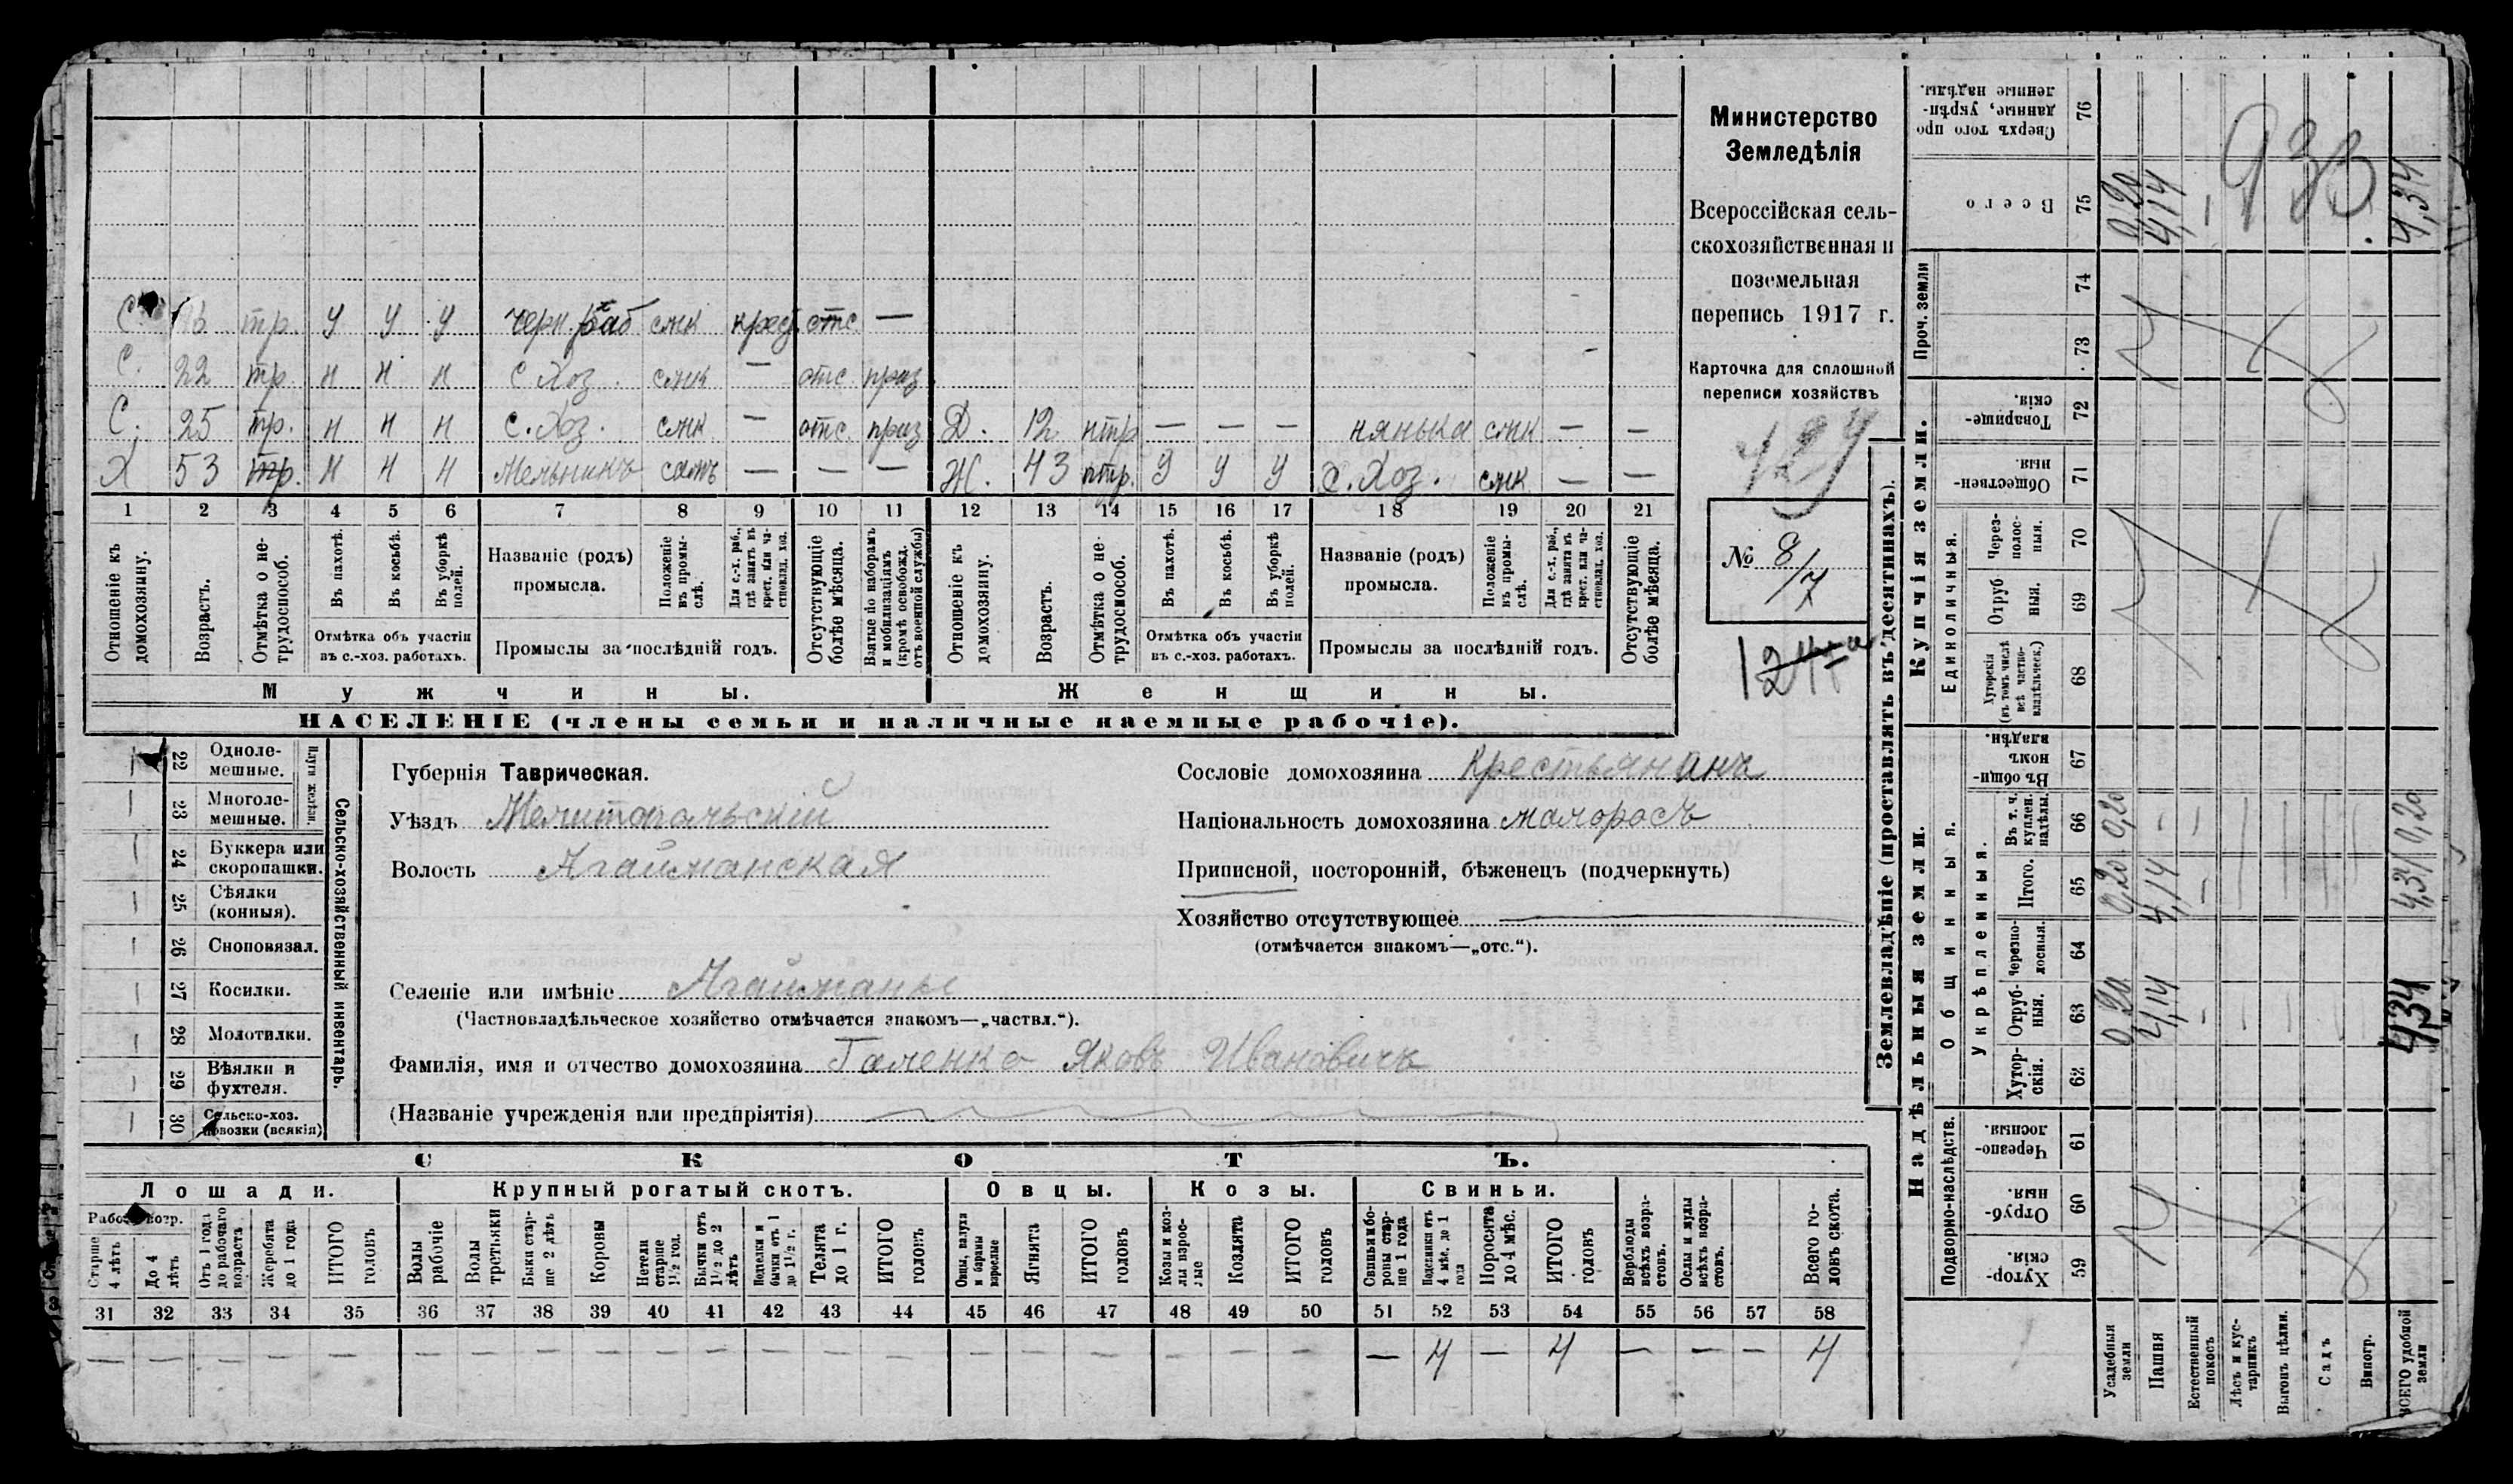 С. 16 тр. у у у черн. раб смк крест. отс. —
С. 22 тр. н н н С Хоз. смк — отс. приз.
С. 25 тр. н н н С. Хоз. смк — отс. приз Д. 12 нтр — — — нянька смк — —
Х 53 тр. н н н Мельникъ самъ — — — Ж. 43 нтр. у у у С. Хоз. смк — —
1 2 3 4 5 6 7 8 9 10 11 12 13 14 15 16 17 18 19 20 21
Отношеніе къ домохозяину.
Возрастъ.
Отмѣтка о нетрудоспособ.
Въ пахотѣ.
Въ косьбѣ.
Въ уборкѣ полей.
Отмѣтка объ участіи
въ с.-хоз. работахъ.
Названіе (родъ)
промысла.
Положеніе въ промыслѣ.
Для с.-х. раб., гдѣ занятъ въ крест. или частновлад. хоз.
Промыслы за послѣдній годъ.
Отсутствующіе болѣе мѣсяца.
Взятые по наборамъ и мобилизаціямъ (кромѣ освобожд. отъ военной службы)
Отношеніе къ домохозяину.
Возрастъ.
Отмѣтка о нетрудоспособ.
Въ пахотѣ.
Въ косьбѣ.
Въ уборкѣ полей.
Отмѣтка объ участіи
въ с.-хоз. работахъ.
Названіе (родъ)
промысла.
Положеніе въ промыслѣ.
Для с.-х. раб., гдѣ занята въ крест. или частновлад. хоз.
Промыслы за послѣдній годъ.
Отсутствующіе болѣе мѣсяца.
Мужчины.
Женщины.
НАСЕЛЕНІЕ (члены семьи и наличные наемные рабочіе).
Министерство
Земледѣлія
Всероссійская сель-
скохозяйственная и
поземельная
перепись 1917 г.
Карточка для сплошной
переписи хозяйствъ
429
№ 8/7
22 Однолемешные.
23 Многолемешные.
Плуги желѣзн.
24 Буккера или скоропашки.
25 Сѣялки (конныя).
26 Сноповязал.
27 Косилки.
28 Молотилки.
29 Вѣялки и фухтеля.
30 Сельско-хоз. повозки (всякія)
Сельско-хозяйственный инвентарь.
Губернія Таврическая.
Уѣздъ Мелитопольскій
Волость Агайманская
Селеніе или имѣніе Агайманы
(Частновладѣльческое хозяйство отмѣчается знакомъ—„частвл.“).
Фамилія, имя и отчество домохозяина Галенко Яковъ Ивановичъ
(Названіе учрежденія или предпріятія)
Сословіе домохозяина Крестьянинъ
Національность домохозяина малоросъ
Приписной, посторонній, бѣженецъ (подчеркнуть)
Хозяйство отсутствующее —
(отмѣчается знакомъ—„отс.“).
СКОТЪ.
Лошади.
Крупный рогатый скотъ.
Овцы.
Козы.
Свиньи.
Рабоч. возр.
Старше 4 лѣтъ
До 4 лѣтъ
Отъ 1 года до рабочаго возраста
Жеребята до 1 года
ИТОГО головъ
Волы рабочіе
Волы третьяки
Быки старше 2 лѣтъ
Коровы
Нетели старше 1½ год.
Бычки отъ 1½ до 2 лѣтъ
Нетелки и бычки отъ 1 до 1½ г.
Телята до 1 г.
ИТОГО головъ
Овцы, валухи и бараны взрослые
Ягнята
ИТОГО головъ
Козы и козлы взрослые
Козлята
ИТОГО головъ
Свиньи боровы старше 1 года
Подсвинки отъ 4 мѣс. до 1 года
Поросята до 4 мѣс.
ИТОГО головъ
Верблюды всѣхъ возрастовъ.
Ослы и мулы всѣхъ возрастовъ.
Всего головъ скота.
31 32 33 34 35 36 37 38 39 40 41 42 43 44 45 46 47 48 49 50 51 52 53 54 55 56 57 58
— — — — — — — — — — — — — — — — — — — — — 4 — 4 — — — 4
Землевладѣніе (проставлять въ десятинахъ).
Купчія земли.
Надѣльныя земли.
Сверхъ того проданные, укрѣпленные надѣлы. 76
Всего 75 0,20 4,14 4,34
933
Проч. земли 74 73
Товарищескія. 72
Общественныя. 71
Единоличныя.
Черезполосныя. 70
Отрубныя. 69
Хуторскія (въ томъ числѣ всѣ частновладѣльческ.) 68
Общинныя.
Въ общинномъ владѣн. 67
Укрѣпленныя.
Въ т. ч. куплен. надѣлы. 66 0,20 0,20
Итого. 65 0,20 4,14 4,34
Черезполосныя. 64
Отрубныя. 63 0,20 4,14 4,34
Хуторскія. 62
Подворно-наслѣдств.
Черезполосныя. 61
Отрубныя. 60
Хуторскія. 59
Усадебныя земли
Пашня
Естественный покосъ
Лѣсъ и кустарникъ
Выгонъ цѣлин.
Садъ
Виногр.
ВСЕГО удобной земли